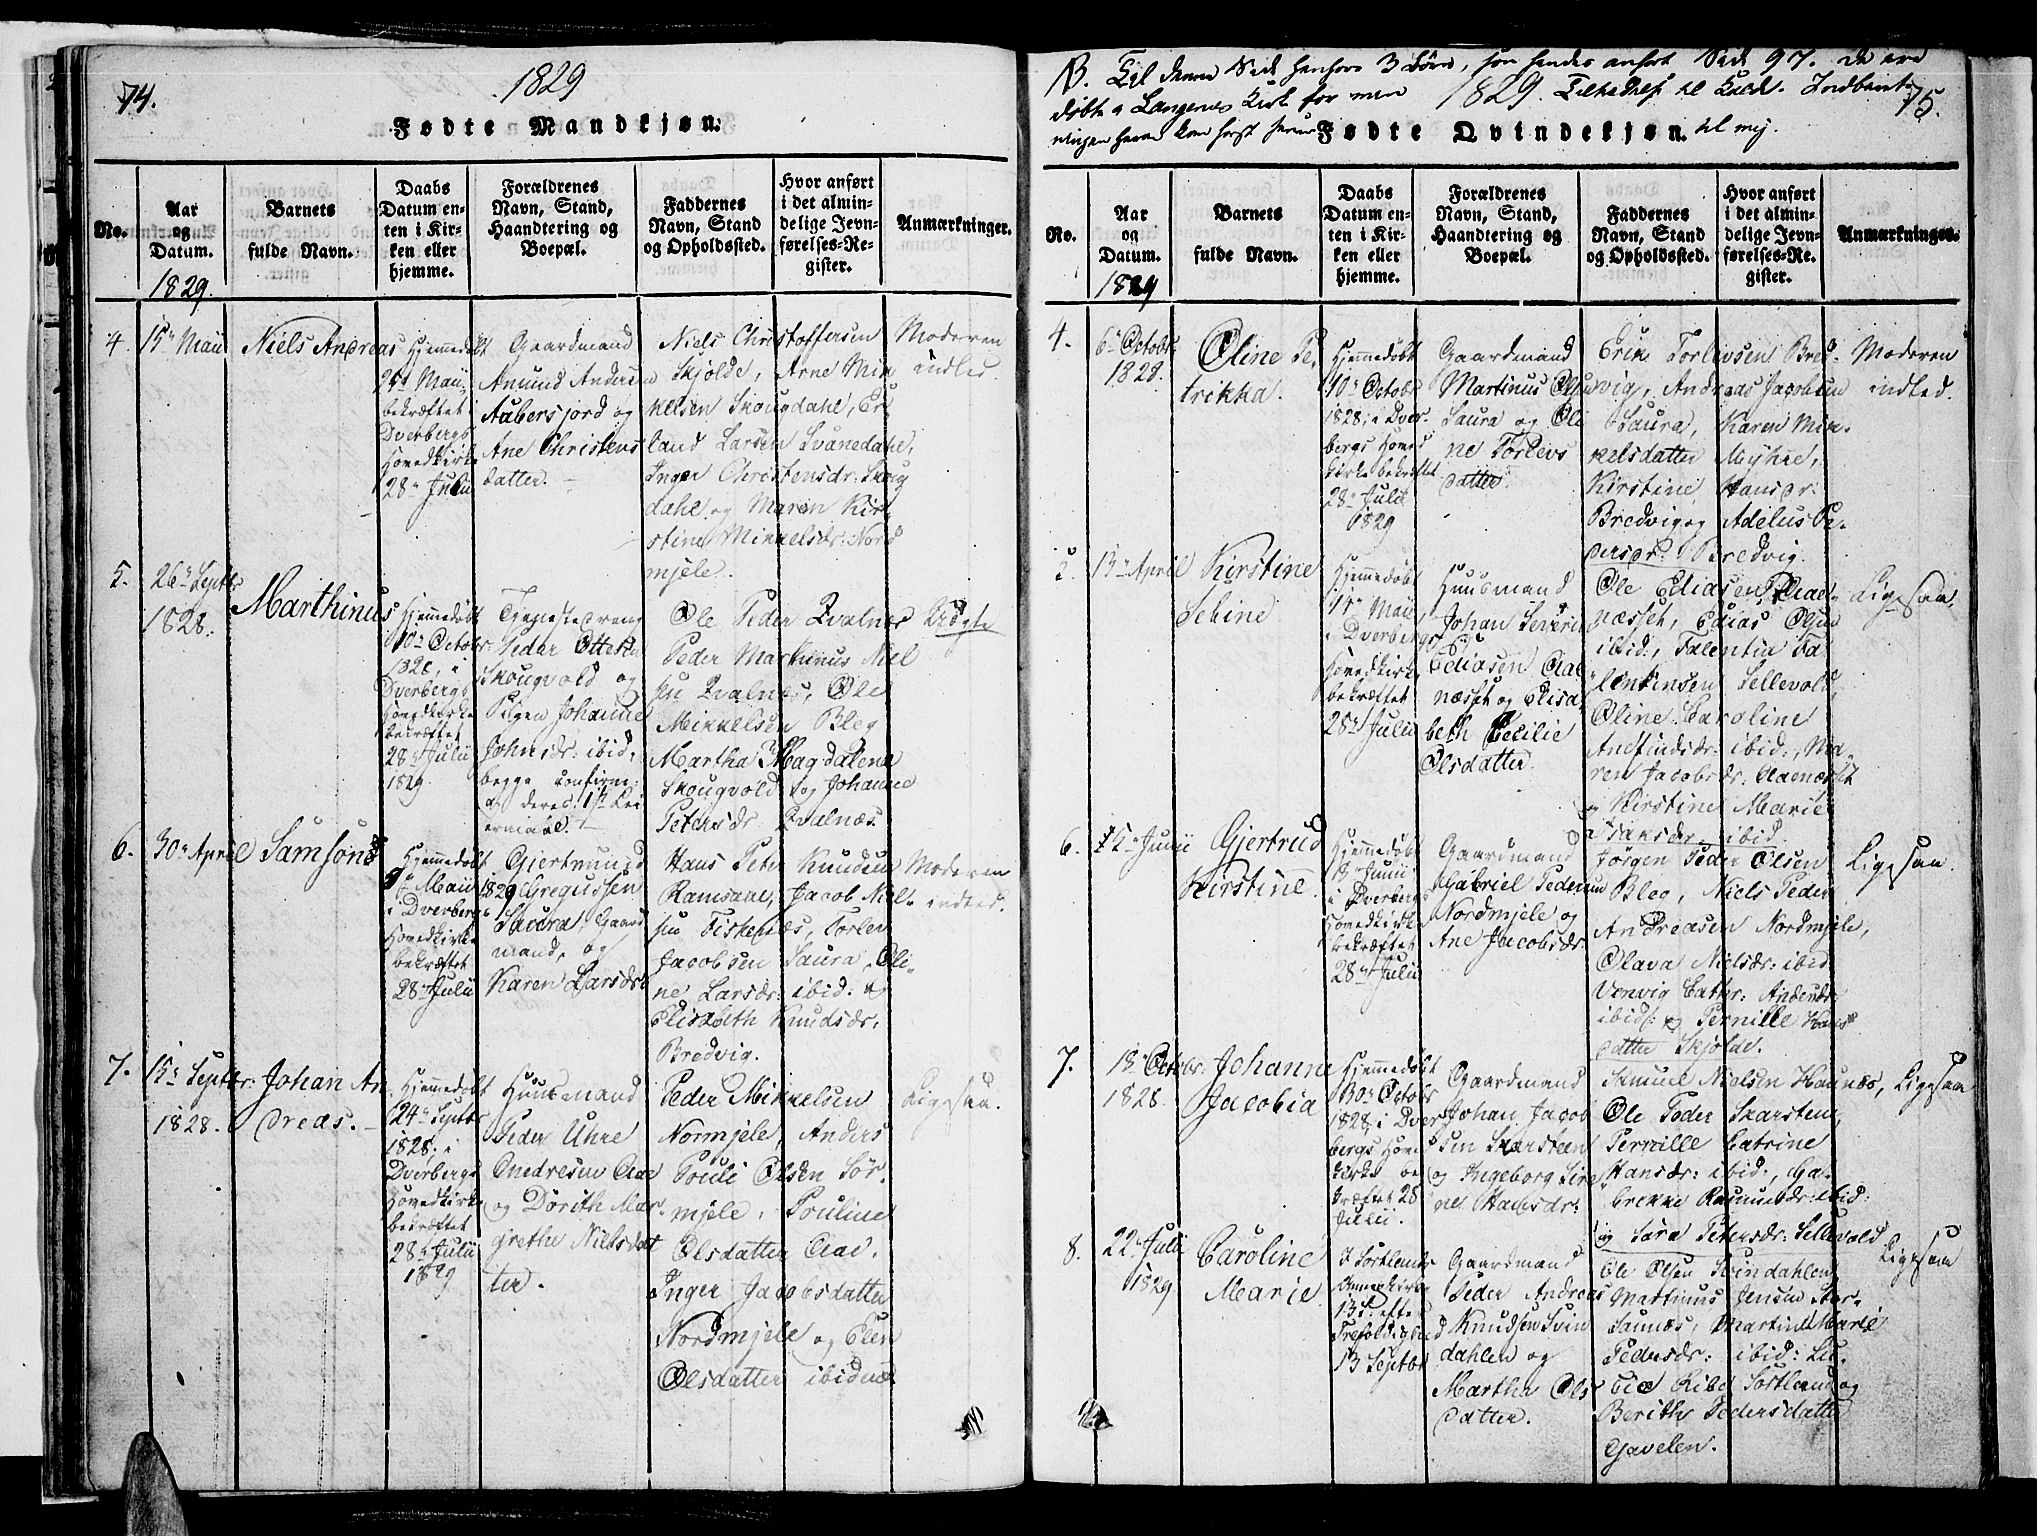 74.
1829
Fødte Mandkjøn.
No.
Aar
og
Datum.
1829.
Barnets
fulde Navn.
Daabs
Datum en-
ten i Kir-
ken eller
hjemme.
Forældrenes
Navn, Stand,
Haandtering og
Boepæl.
Faddernes
Navn, Stand
og Opholdssted.
Hvor anført
i det almin-
delige Jevn-
førelses-Re-
gister.
Anmærkninger.
4.
15de Maii
Niels Andreas
Hjemmedøbt
Maii,
bekræftet i
Dverbergs
Hovedkirke
28de Julii
Gaardmand
Amund Andersen
Aabersjord og
Ane Christens
datter.
Niels Christoffersen
Skjolde, Arne Mik
kelsen Skougdahl, Er
land Larsen Svanedahl,
Inger Christensdr: Skoug
dahl og Maren Kir
stine Mikkelsdr: Nord
mjele.
Moderen
indled.
5.
26de Septbr
1828.
Marthinus
Hjemmedøbt
10de Octobr
1828, i
Dverbergs
Hovedkirke
bekræftet
28de Julii
1829.
Tjenestedreng
Peder Ottesen
Skougvold og
Pigen Johanne
Johnsdr: ibid,
begge confirme:
og deres 1ste Lei
ermaal.
Ole Peder Kvalnæs
Peder Marthinus Niel
sen Kvalnæs, Ole
Mikkelsen Bleg
Martha Magdalena
Skougvold og Johanne
Petersdr Kvalnæs.
Uægte
6.
30de April
Samsøn
Hjemmedøbt
Maii 1829
i Dverbergs
Hovedkirke
bekræftet
28de Julii
Gjertmund
Gregussen
Saura, Gaard
mand, og
Karen Larsdr
Hans Peter Knudsen
Ramsaae, Jacob Niel-
sen Fiskenæs, Torlev
Jacobsen Saura, Oli-
ne Larsdr: ibid: og
Elisabeth Knudsdr,
Bredvig.
Moderen
indled.
7.
15de Septbr:
1828.
Johan An
dreas.
Hjemmedøbt
24de Septbr
1828, i
Dverbergs
Hovedkirke
bekræftet
28de Julii
1829
Huusmand
Peder Uhre
Andresen Aae
og Dorith Mar
grethe Nielsdat
ter.
Peder Mikkelsen
Normjele, Anders
Pouli Olsen Sør-
mjele, Pouline
Olsdatter Aae.
Inger Jacobsdatter
Nordmjele og Elen
Olsdatter ibidem
Ligesaa.
NB. Til denne Side henføres 3 Børn, som findes anført Side 97. De ere
døbte i Langenes Kirke før min 1829. Tiltrædelse til Kaldet. Indberet-
ningen herom kom først senere til mig.
75.
Fødte Qvindekjøn.
No.
Aar
og
Datum.
1829
Barnets
fulde Navn.
Daabs
Datum en-
ten i Kir-
ken eller
hjemme.
Forældrenes
Navn, Stand,
Haandtering og
Boepæl.
Faddernes
Navn, Stand
og Opholdssted.
Hvor anført
i det almin-
delige Jevn-
førelses-Re-
gister.
Anmærkninger.
4.
6de Octobr
1828.
Oline Pe-
trikka.
Hjemmedøbt
10de Octobr
1828, i Dver-
bergs Hoved
kirke bekræftet
28de Julii
1829
Gaardmand
Martinus Olsen
Saura og Oli
ne Torlevs
datter.
Erik Torlevsen Bred-
vig, Andreas Jacobsen
Saura, Karen Mik-
kelsdatter Myhre,
Kirstine Hansdr:
Bredvig og Adelus Pe-
dersdr. Bredvig.
Moderen
indled.
5.
13de April
Kirstine
Sebine
Hjemmedøbt
Maii,
i Dverbergs
Hovedkirke
bekræftet
28de Julii
Huusmand
Johan Severin
Ediasen Aae
næsset og Elisa
beth Cecilie
Olsdatter.
Ole Ediasen Aae-
næsset, Edias Olsen
ibid:, Falentin Fa
lentinsen Sellevold,
Oline Caroline
Andfindsdr: ibid:, Ma-
ren Jacobsdr: Aaenæsset
og Kirstine Marie
Hansdr. ibid.
Ligesaa.
6.
Junii
Gjertrud
Kirstine
Hjemmedøbt
Junii
i Dverbergs
Hovedkirke
bekræftet
28de Julii
Gaardmand
Gabriel Pedersen
Nordmjele og
Ane Jacobsdr
Jørgen Peder Olsen
Bleg, Niels Peder
Andreasen Nordmjele,
Olava Nielsdr: ibid
ibid: og Pernille Hans
datter Skjolde.
Ligesaa.
7.
18de Octobr:
1828.
Johanne
Jacobia
Hjemmedøbt
30de Octobr
1828, i Dver
bergs Hoved
kirke be
kræftet 28
Julii.
Gaardmand
Johan Jacob
sen Skarsteen
og Ingeborg Sire
ne Hansdr:
Samuel Nielsen Haunæs,
Ole Peder Skarsteen,
Pernille Catrine
Hansdr: ibid:, Ga-
brekke Rasmusdr: ibid:
og Sara Petersdr: Sellevold
Ligesaa
8.
22de Julii
1829
Caroline
Marie
I Sortlands
Annexkirke
13de S. efter
Trefoldighed
13 Septbr
Gaardmand
Peder Andreas
Knudsen Svin
dahlen og
Martha Ols
datter.
Ole Olsen Svindahlen,
Martinus Jensen Stor-
Saunæs, Martine Marie
Pedersdr: ibid: Lu-
cie Kibe Sortland og
Berith Pedersdatter
Gavelen.
Ligesaa